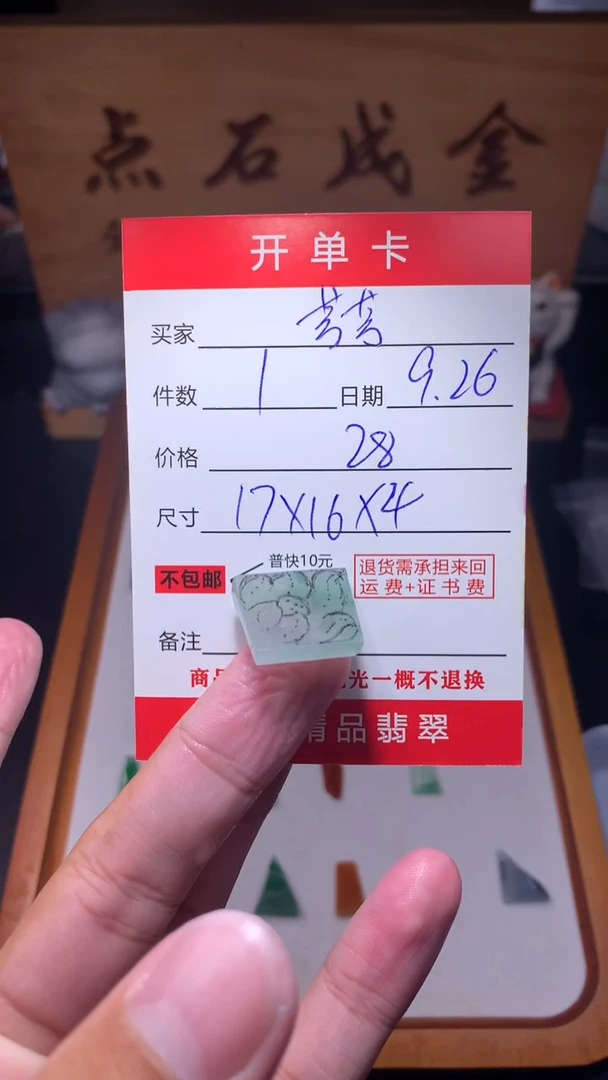 点石成金
开单卡
买家 芳芳
件数 1 日期 9.26
价格 28
尺寸 17X16X4
普快10元
不包邮
退货需承担来回
运费+证书费
备注
商 光一概不退换
精品翡翠